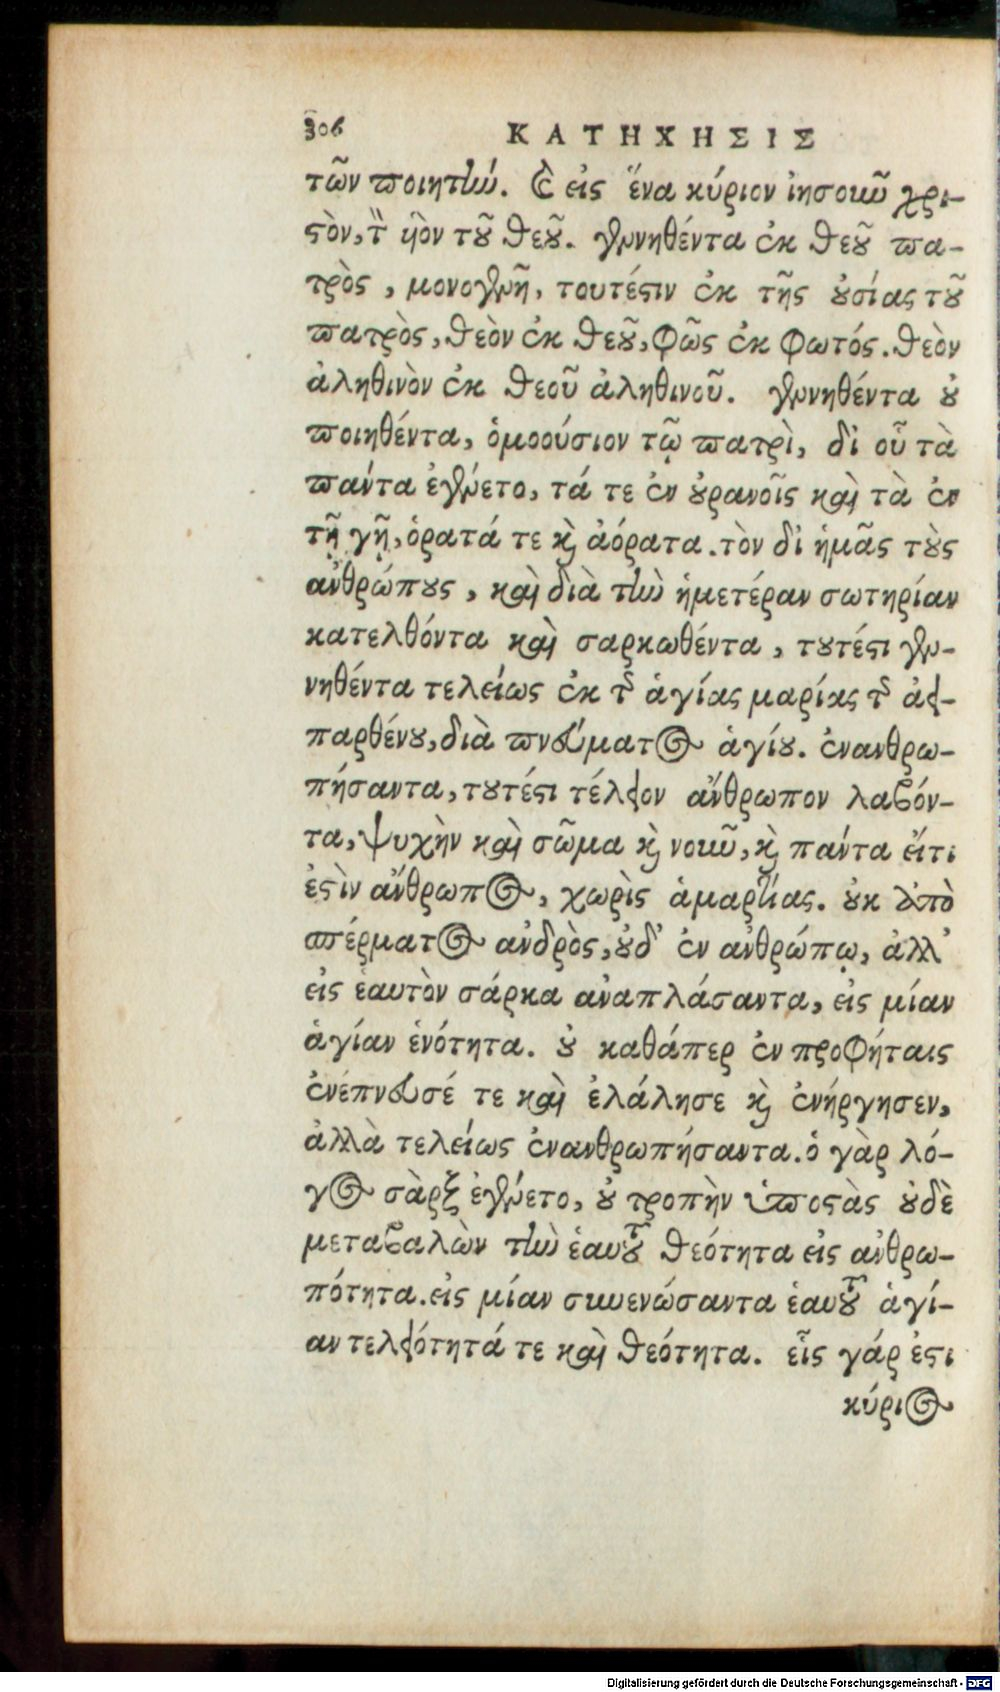 306 ΚΑΤΗΧΗΣΙΣ
τῶν ποιητήν. Καὶ εἰς ἕνα κύριον ἰησοῦν χρι-
στὸν, τὸν υἱὸν τοῦ θεοῦ. γεννηθέντα ἐκ θεοῦ πα-
τρὸς, μονογενῆ, τουτέστιν ἐκ τῆς οὐσίας τοῦ
πατρὸς, θεὸν ἐκ θεοῦ, φῶς ἐκ φωτός. θεὸν
ἀληθινὸν ἐκ θεοῦ ἀληθινοῦ. γεννηθέντα οὐ
ποιηθέντα, ὁμοούσιον τῷ πατρὶ, δι οὗ τὰ
πάντα ἐγένετο, τά τε ἐν οὐρανοῖς καὶ τὰ ἐν
τῇ γῇ, ὁρατά τε καὶ ἀόρατα. τὸν δι ἡμᾶς τοὺς
ἀνθρώπους, καὶ διὰ τὴν ἡμετέραν σωτηρίαν
κατελθόντα καὶ σαρκωθέντα, τουτέστι γεν-
νηθέντα τελείως ἐκ τῆς ἁγίας μαρίας τῆς ἀει-
παρθένου, διὰ πνεύματος ἁγίου. ἐνανθρω-
πήσαντα, τουτέστι τέλειον ἄνθρωπον λαβόν-
τα, ψυχὴν καὶ σῶμα καὶ νοῦν, καὶ πάντα εἴτι
ἐστὶν ἄνθρωπος, χωρὶς ἁμαρτίας. οὐκ ἀπὸ
σπέρματος ἀνδρὸς, οὐδ' ἐν ἀνθρώπῳ, ἀλλ'
εἰς ἑαυτὸν σάρκα ἀναπλάσαντα, εἰς μίαν
ἁγίαν ἑνότητα. οὐ καθάπερ ἐν προφήταις
ἐνέπνευσέ τε καὶ ἐλάλησε καὶ ἐνήργησεν,
ἀλλὰ τελείως ἐνανθρωπήσαντα. ὁ γὰρ λό-
γος σὰρξ ἐγένετο, οὐ τροπὴν ὑποστὰς οὐδὲ
μεταβαλὼν τὴν ἑαυτοῦ θεότητα εἰς ἀνθρω-
πότητα. εἰς μίαν συνενώσαντα ἑαυτοῦ ἁγί-
αν τελειότητά τε καὶ θεότητα. εἷς γάρ ἐστι
κύριος
Digitalisierung gefördert durch die Deutsche Forschungsgemeinschaft - DFG